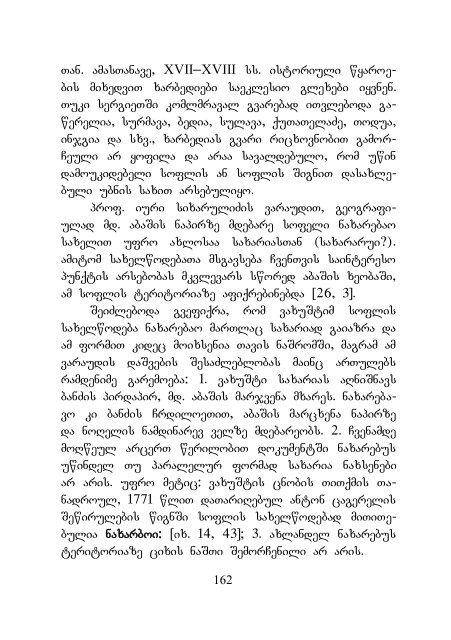 თან. ამასთანავე, XVII–XVIII სს. ისტორიული წყაროე-
ბის მიხედვით ხარბედიები საეკლესიო გლეხები იყვნენ.
თუკი სერგიეთში კომლმრავალ გვარებად ითვლებოდა გა-
წერელია, სურმავა, ბედია, სულავა, ქუთათელაძე, თოდუა,
ინჯგია და სხვ., ხარბედიას გვარი რიცხოვნობით გამორ-
ჩეული არ ყოფილა და არაა სავალდებულო, რომ უწინ
დამოუკიდებელი სოფლის ან სოფლის შიგნით დასახლე-
ბული უბნის სახით არსებულიყო.
პროფ. იური სიხარულიძის ვარაუდით, გეოგრაფი-
ულად მდ. აბაშის ნაპირზე მდებარე სოფელი ნახარებაო
სახელით უფრო ახლოსაა სახარიასთან (სახარარუი?).
ამიტომ სახელწოდებათა მსგავსება ჩვენთვის საინტერესო
პუნქტის არსებობას მკვლევარს სწორედ აბაშის ხეობაში,
ამ სოფლის ტერიტორიაზე აფიქრებინებდა [26, 3].
შეიძლებოდა გვეფიქრა, რომ ვახუშტიმ სოფლის
სახელწოდება ნახარებაო მართლაც სახარიად გაიაზრა და
ამ ფორმით კიდეც მოიხსენია თავის ნაშრომში, მაგრამ ამ
ვარაუდის დაშვების შესაძლებლობას მაინც ართულებს
რამდენიმე გარემოება: 1. ვახუშტი სახარიას აღნიშნავს
ბანძის პირდაპირ, მდ. აბაშის მარჯვენა მხარეს. ნახარება-
ვო კი ბანძის ჩრდილოეთით, აბაშის მარცხენა ნაპირზე
და ნოღელის ნამდინარევ ველზე მდებარეობს. 2. ჩვენამდე
მოღწეულ არცერთ წერილობით დოკუმენტში ნახარებუს
უწინდელ თუ პარალელურ ფორმად სახარია ნახსენები
არ არის. უფრო მეტიც: ვახუშტის ცნობის თითქმის თა-
ნადროულ, 1771 წლით დათარიღებულ ანტონ ცაგერელის
შეწირულების წიგნში სოფლის სახელწოდებად მითითე-
ბულია ნახარბოი: [იხ. 14, 43]; 3. ახლანდელ ნახარებუს
ტერიტორიაზე ციხის ნაშთი შემორჩენილი არ არის.
162